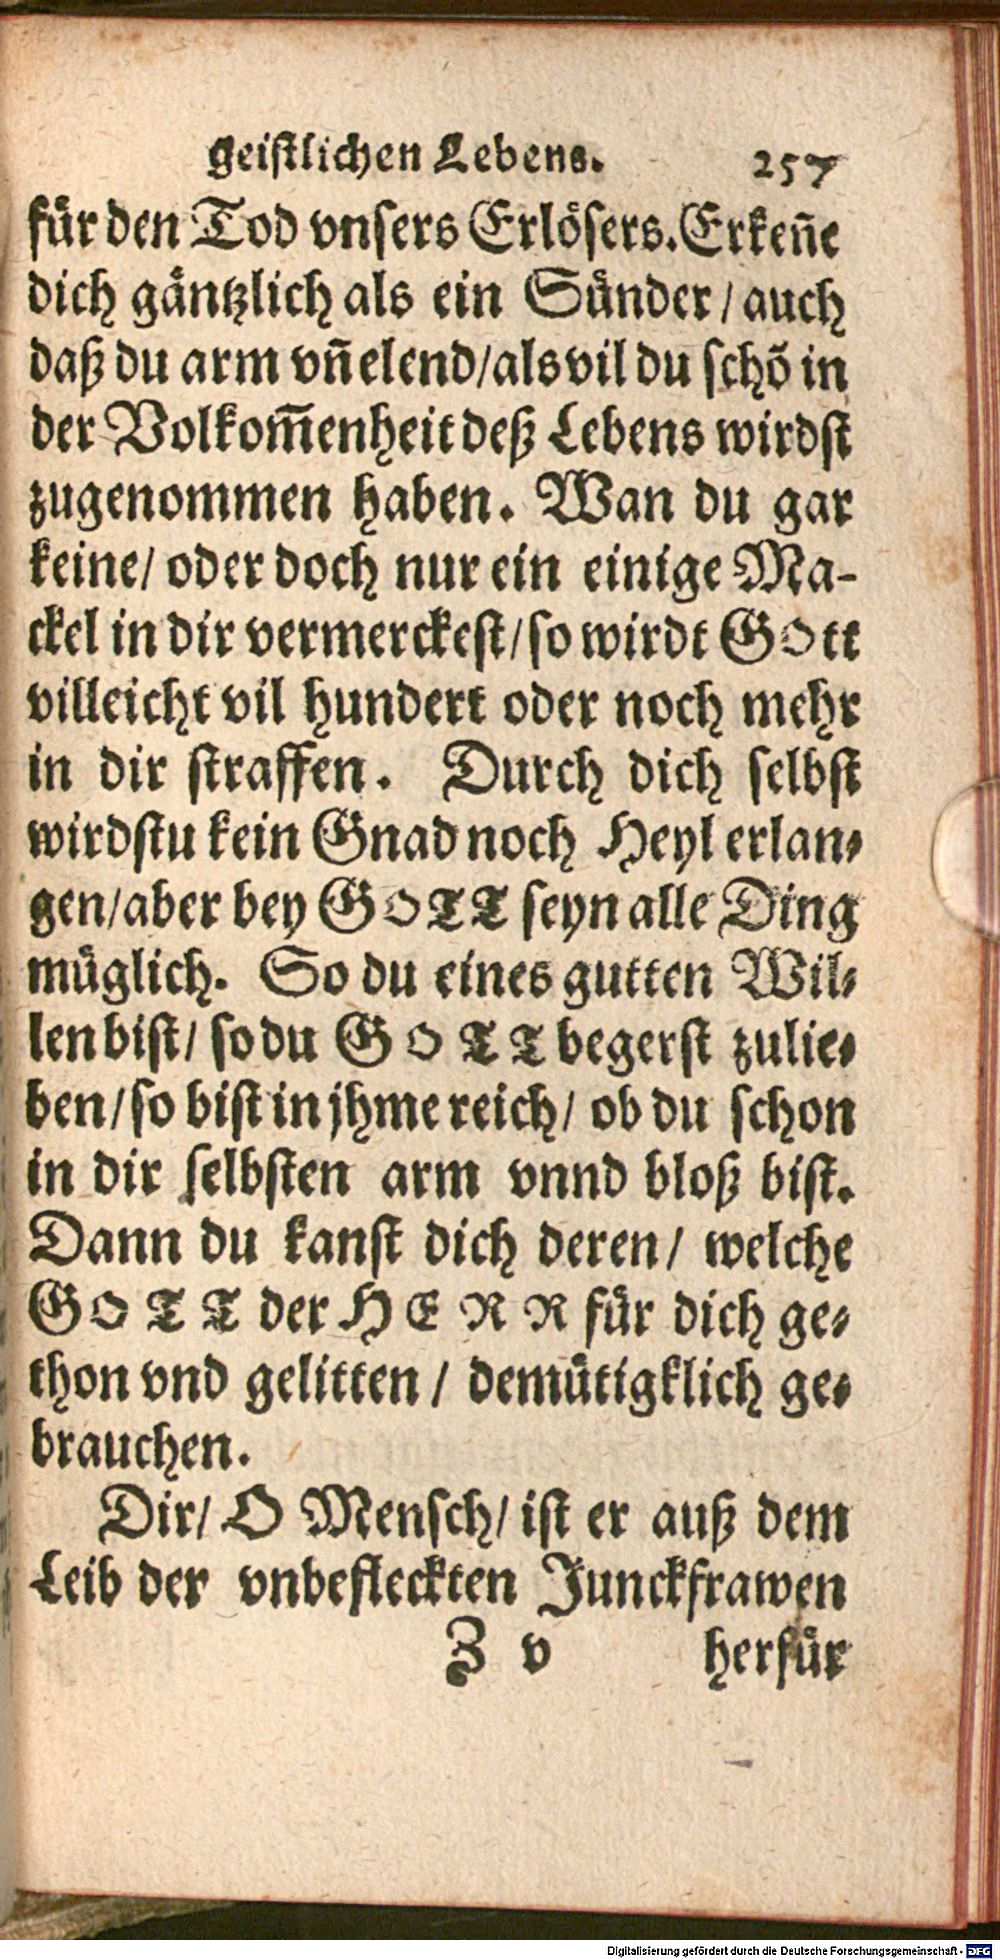 geistlichen Lebens. 257
für den Tod vnsers Erlösers. Erkeñe
dich gäntzlich als ein Sünder / auch
daß du arm vñ elend / als vil du schõ in
der Volkom̃enheit deß Lebens wirdst
zugenommen haben. Wan du gar
keine / oder doch nur ein einige Ma-
ckel in dir vermerckest / so wirdt GOtt
villeicht vil hundert oder noch mehr
in dir straffen. Durch dich selbst
wirdstu kein Gnad noch Heyl erlan-
gen / aber bey GOTT seyn alle Ding
müglich. So du eines gutten Wil-
len bist / so du GOTT begerst zulie-
ben / so bist in jhme reich / ob du schon
in dir selbsten arm vnnd bloß bist.
Dann du kanst dich deren / welche
GOTT der HERR für dich ge-
thon vnd gelitten / demütigklich ge-
brauchen.
Dir / O Mensch / ist er auß dem
Leib der vnbefleckten Junckfrawen
Z v herfür
Digitalisierung gefördert durch die Deutsche Forschungsgemeinschaft - DFG